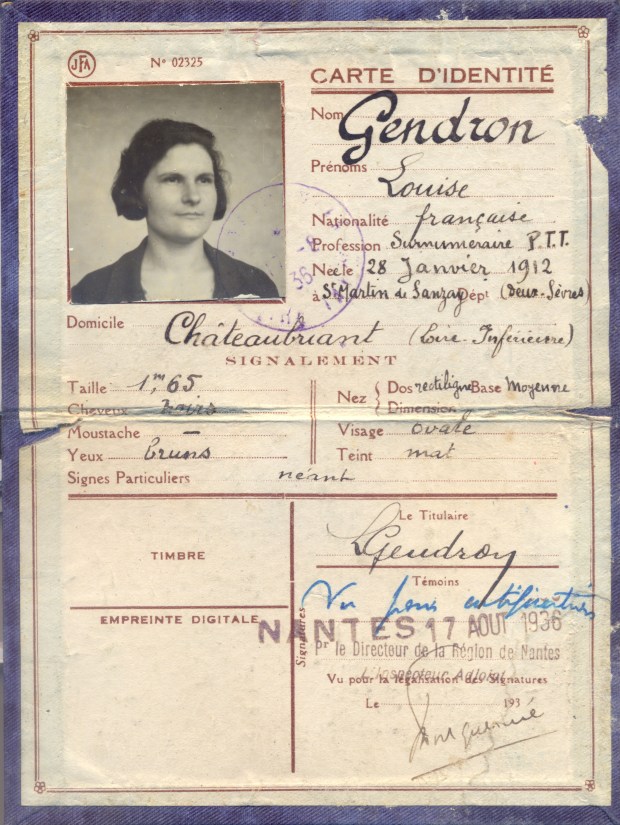 JFA
Nº 02325
CARTE D'IDENTITÉ
Nom Gendron
Prénoms Louise
Nationalité française
Profession Surnuméraire P.T.T.
Née le 28 Janvier 1912
à St Martin de Sanzay Dépt (Deux-Sèvres)
Domicile Châteaubriant (Loire-Inférieure)
SIGNALEMENT
Taille 1m,65
Cheveux noirs
Moustache —
Yeux bruns
Signes Particuliers néant
Nez { Dos rectiligne Base Moyenne
Dimension
Visage ovale
Teint mat
TIMBRE
EMPREINTE DIGITALE
Le Titulaire
LGendron
Témoins
Signatures
Vu pour
NANTES 17 AOUT 1936
Pr le Directeur de la Région de Nantes
L'Inspecteur Adjoint
Vu pour la légalisation des Signatures
Le 193